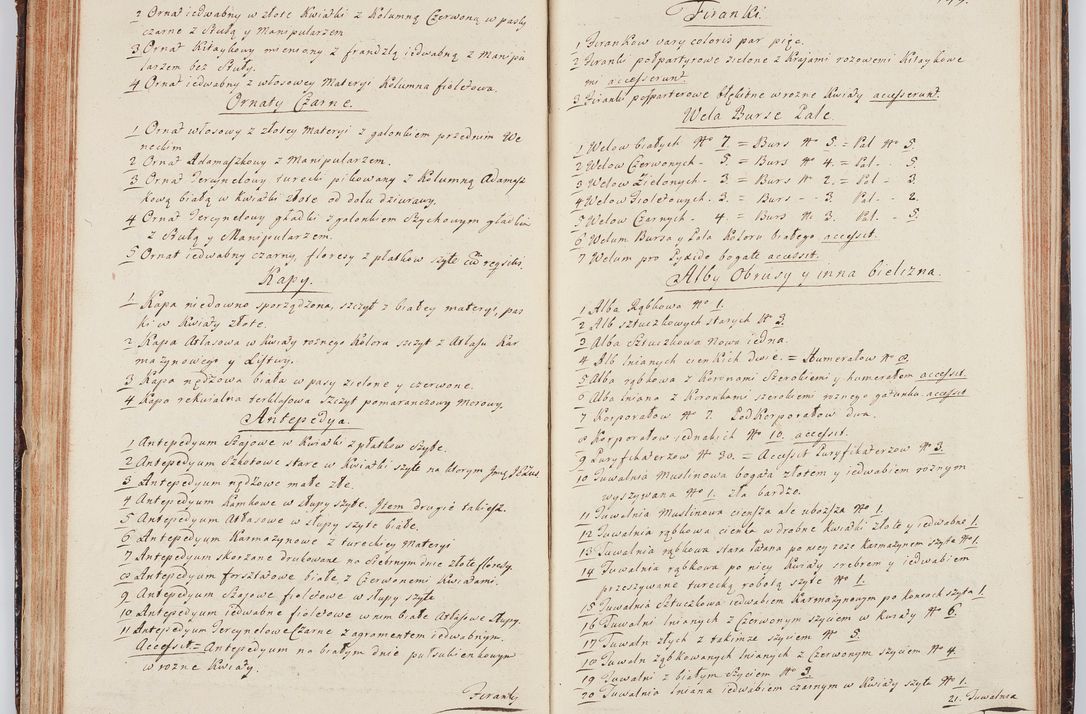 2 Ornat iedwabny w złote Kwiatki z Kolumną Czerwoną w pasky
czarne z Stułą y Manipularzem
3 Ornat Kitaykowy mieniony z frandzlą iedwabną z Manipu
larzem bez Stuły.
4 Ornat iedwabny z włosowey Materyi Kolumna fioletowa.
Ornaty Czarne.
1 Ornat włosowy z złotey Materyi z galonkiem przednim We
neckim
2 Ornat Adamaszkowy z Manipularzem.
3 Ornat Tercynelowy turecki pikowany z Kolumną Adamasz
kową białą w Kwiatki złote od dołu dziurawy.
4 Ornat Tercynelowy gładki z galonkiem Szychowym gładkim
z Stułą y Manipularzem.
5 Ornat iedwabny czarny, floresy z płatkow szyte cũ reqsitis.
Kapy.
1 Kapa niedawno sporządzona, szczyt z białey materyi, pas
ki w Kwiaty złote.
2 Kapa Atłasowa w Kwiaty rożnego Koloru szczyt z Atłasu Kar
mazynowego y Lisztwy.
3 Kapa nędzowa biała w pasy zielone y czerwone.
4 Kapa rekwialna terklasowa Szczyt pomaranczowy Morowy.
Antepedya.
1 Antepedyum Szajowe w Kwiatki z płatkow Szyte.
2 Antepedyum Szkotowe stare w Kwiatki szyte na ktorym Jmię JEzus.
3 Antepedyum nędzowe małe złe.
4 Antepedyum Kamkowe w słupy szyte. Jtem drugie takiesz.
5 Antepedyum Atłasowe w słupy szyte białe.
6 Antepedyum Karmazynowe z tureckiey Materyi
7 Antepedyum skorzane drukowane na srebrnym dnie złote floresy.
8 Antepedyum forsztatowe białe, z Czerwonemi Kwiatami.
9 Antepedyum Szajowe fioletowe w słupy szyte
10 Antepedyum iedwabne fioletowe w nim białe Atłasowe słupy.
11 Antepedyum Tercynelowe Czarne z agromentem iedwabnym.
Accessit = Antepedyum na białym dnie pułsubienkowym
w rożne Kwiaty.
Firanky
Firanki.
1 Firankow vary coloris par pięc.
2 Firanki połpartyrowe zielone z Krajami rozowemi Kitaykowe
mi accesserunt
3 Firanki połparterowe błękitne w rożne Kwiaty accesserunt
Wela Burse Pale.
1 Welow białych No 7. = Burs No 5. = Pal No 5.
2 Welow Czerwonych - 5. = Burs No 4. = Pal. - - 5
3 Welow Zielonych - 3. = Burs No 2. = Pal - - 3
4 Welow Fioletowych. 3. = Burs - - 3. Pal. - - 2.
5 Welow Czarnych - 4 = Burs No 3. Pal. - - 5
6 Welum Bursa y Pala Koloru białego accessit.
7 Welum pro Pyxide bogate accessit.
Alby Obrusy y inna bielizna.
1 Alba Rąbkowa No 1.
2 Alb sztuczkowych starych No 3.
3 Alba Sztuczkowa Nowa iedna.
4 Alb lnianych cienkich dwie. = Humerałow No 8.
5 Alba rąbkowa z Koronami Szerokiemi y humerałem accessit
6 Alba lniana z Koronkami szerokiemi rożnego gatunku accessit
7 Korporałow No 7. Pod Korporałow dwa.
8 Korporałow iednakich No 10. accessit.
9 Puryfikaterzow No 30. = Accessit Puryfikaterzow No 3.
10 Tuwalnia Muslinowa bogata złotem y iedwabiem rożnym
wyszywana No 1. zła bardzo.
11 Tuwalnia Muslinowa cienſza ale uboższa No 1.
12 Tuwalnia rąbkowa cienka w drobne kwiatki złote y iedwabne 1.
13 Tuwalnia rąbkowa stara lŧana po niey roże Karmazynem szyte No 1.
14 Tuwalnia rąbkowa po niey Kwiaty srebrem y iedwabiem
przeszywane turecką robotą szyte No 1.
15 Tuwalnia Sztuczkowa iedwabiem Karmazynowym po koncach szyta 1.
16 Tuwalni lnianych z Czerwonym szyciem w kwiaty No 6.
17 Tuwaln złych z takimże szyciem No 5.
18 Tuwaln ząbkowanych lnianych z Czerwonym szyciem No 4.
19 Tuwalni z białym szyciem No 3.
20 Tuwalnia lniana iedwabiem czarnym w Kwiaty szyta No 1.
21. Tuwalnia